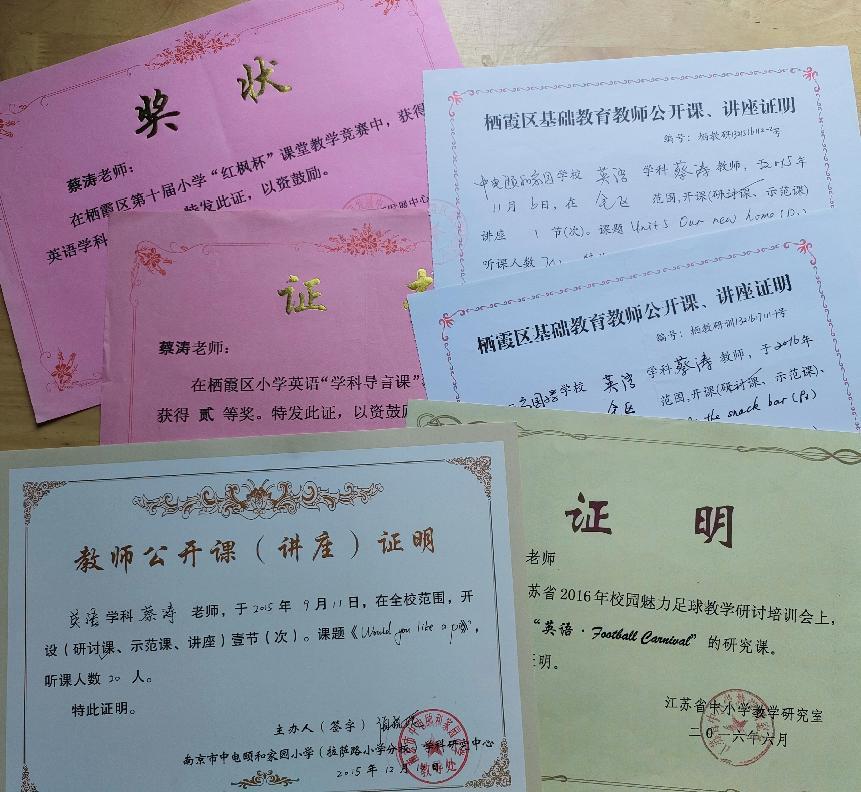 奖 状
蔡涛老师:
在栖霞区第十届小学“红枫杯”课堂教学竞赛中，获得
英语学科
特发此证，以资鼓励。
栖霞区基础教育教师公开课、讲座证明
编号：栖教研
中电颐和家园学校 英语 学科蔡涛教师，于2015年
11月6日，在 全区 范围，开课(研讨课、示范课)
讲座 1 节(次)。课题 Unit 5 Our new home
听课人数
证
蔡涛老师:
在栖霞区小学英语“学科导言课”
获得 贰 等奖。特发此证，以资鼓励
栖霞区基础教育教师公开课、讲座证明
编号：栖教研训
学校 英语 学科蔡涛教师，于2016年
全区 范围，开课(研讨课、示范课)、
the snack bar
教师公开课（讲座）证明
英语学科蔡涛 老师，于2015年 9月11日，在全校范围，开
设（研讨课、示范课、讲座）壹节（次）。课题《Would you like a pie?》，
听课人数 20 人。
特此证明。
主办人（签字）
南京市中电颐和家园小学（拉萨路小学分校）学科研究中心
2015年12月
证 明
老师
苏省2016年校园魅力足球教学研讨培训会上，
“英语·Football Carnival”的研究课。
明。
江苏省中小学教学研究室
二〇一六年六月